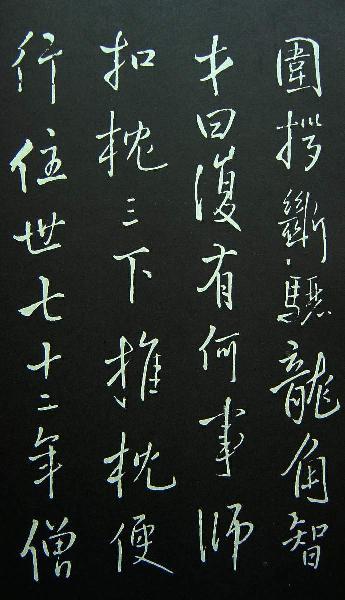 圍拶斷驪龍角智
才曰復有何事師
扣枕三下推枕便
行住世七十二年僧